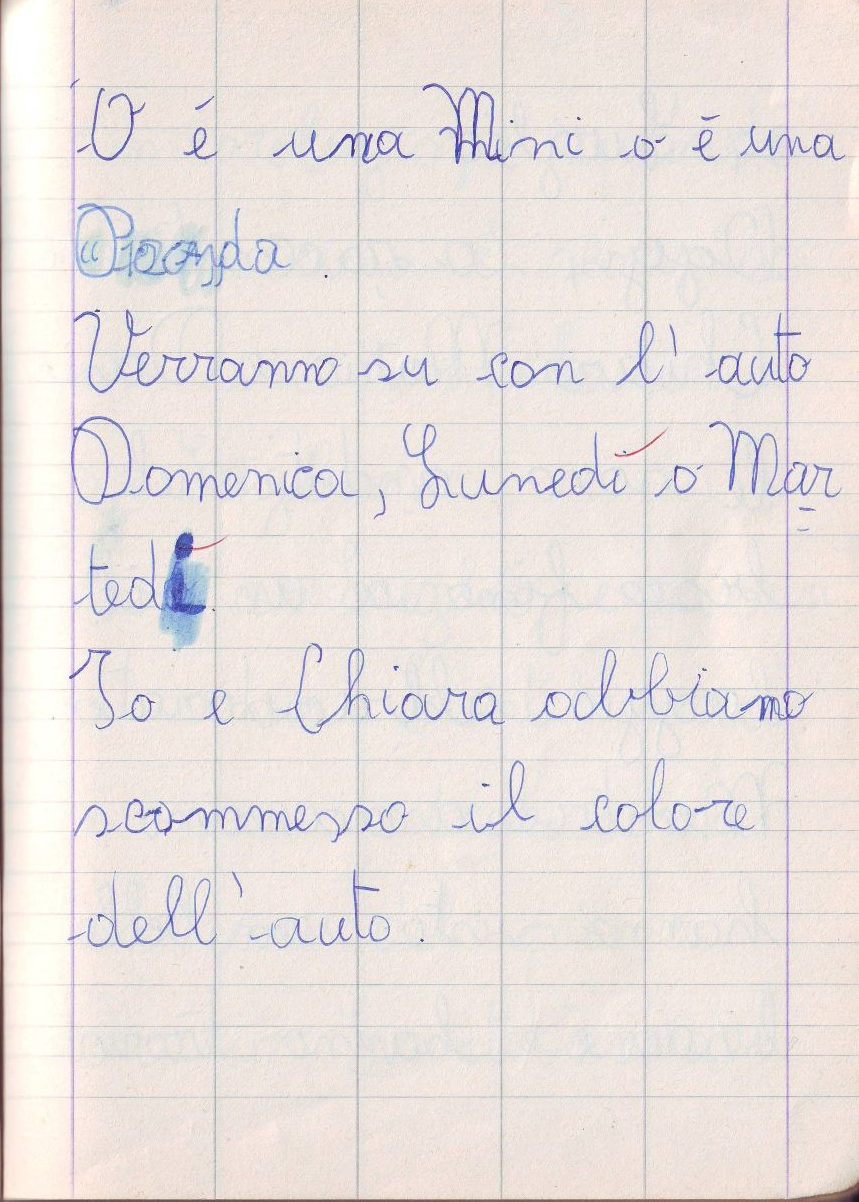 O é una Mini o é una
"
Verranno su con l' auto
Domenica, Lunedí o Mar
tedí.
Io e Chiara abbiamo
scommesso il colore
dell' auto.